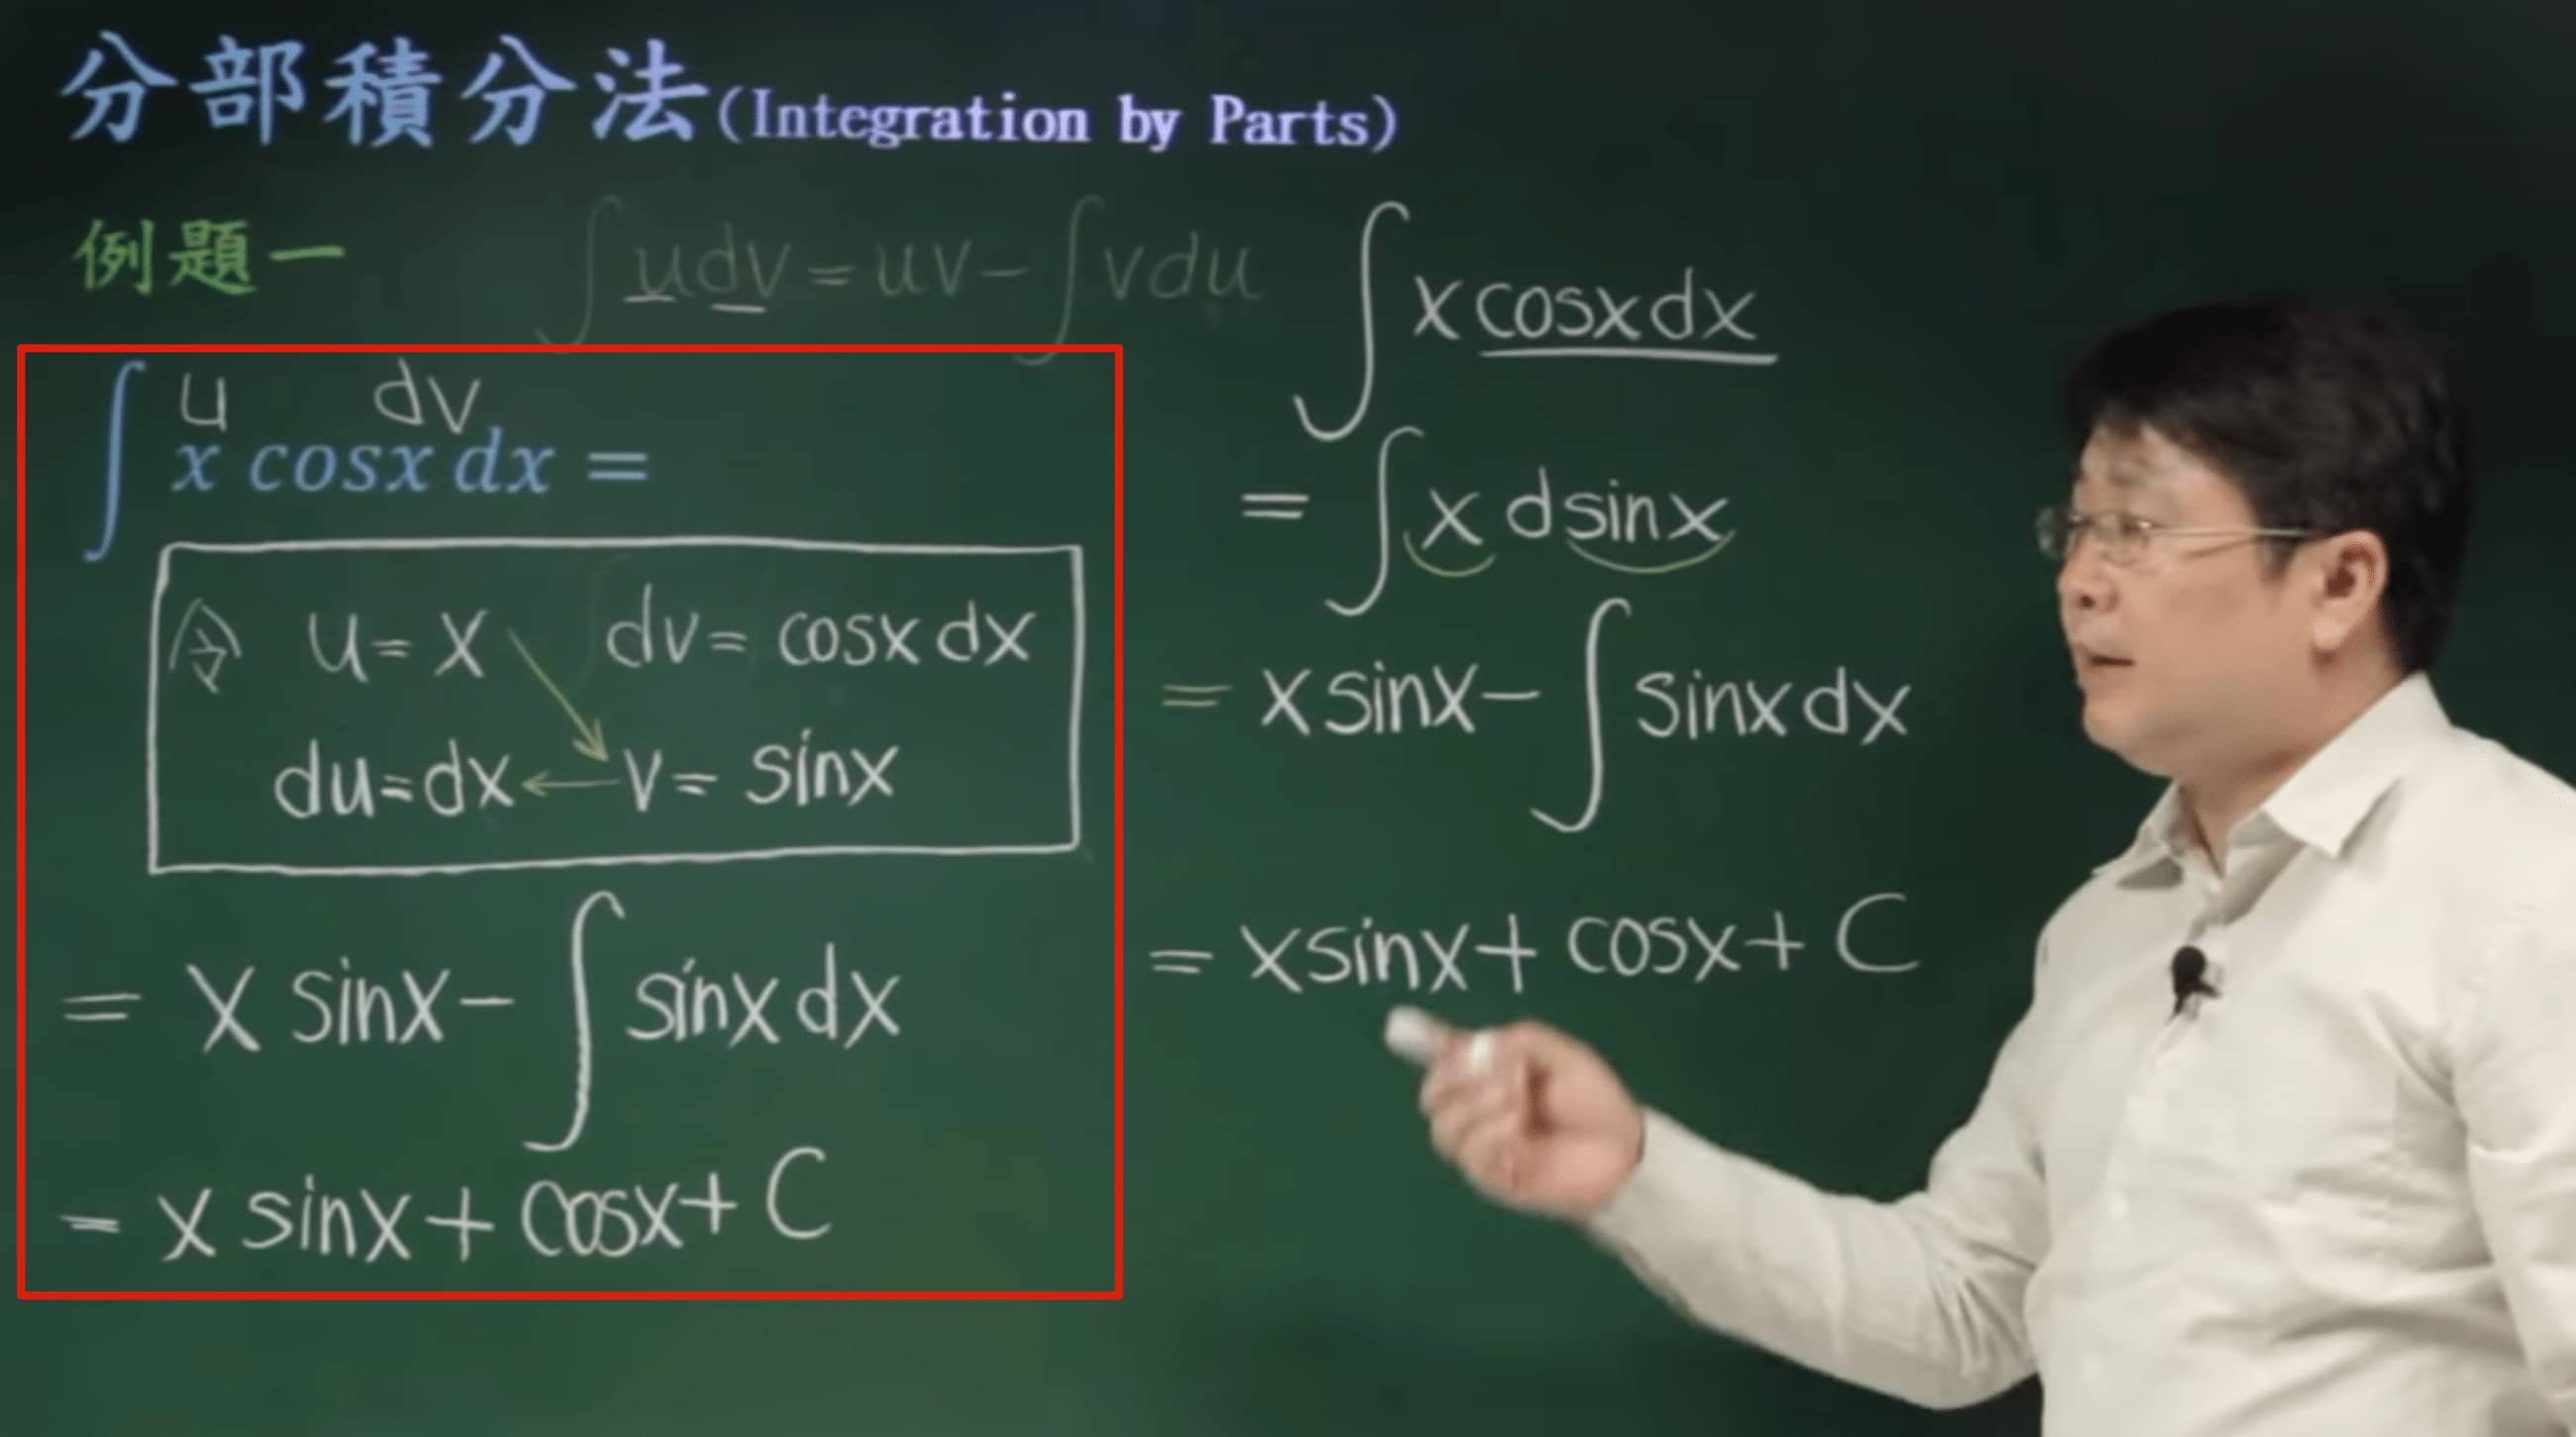 分部積分法(Integration by Parts)
例題一
∫udv=uv-∫vdu
u dv
∫x cosx dx =
令 u=x dv=cosx dx
du=dx v=sinx
= x sinx-∫sinx dx
= x sinx+cosx+C
∫x cosx dx
=∫x dsinx
= x sinx-∫sinx dx
= xsinx+cosx+C